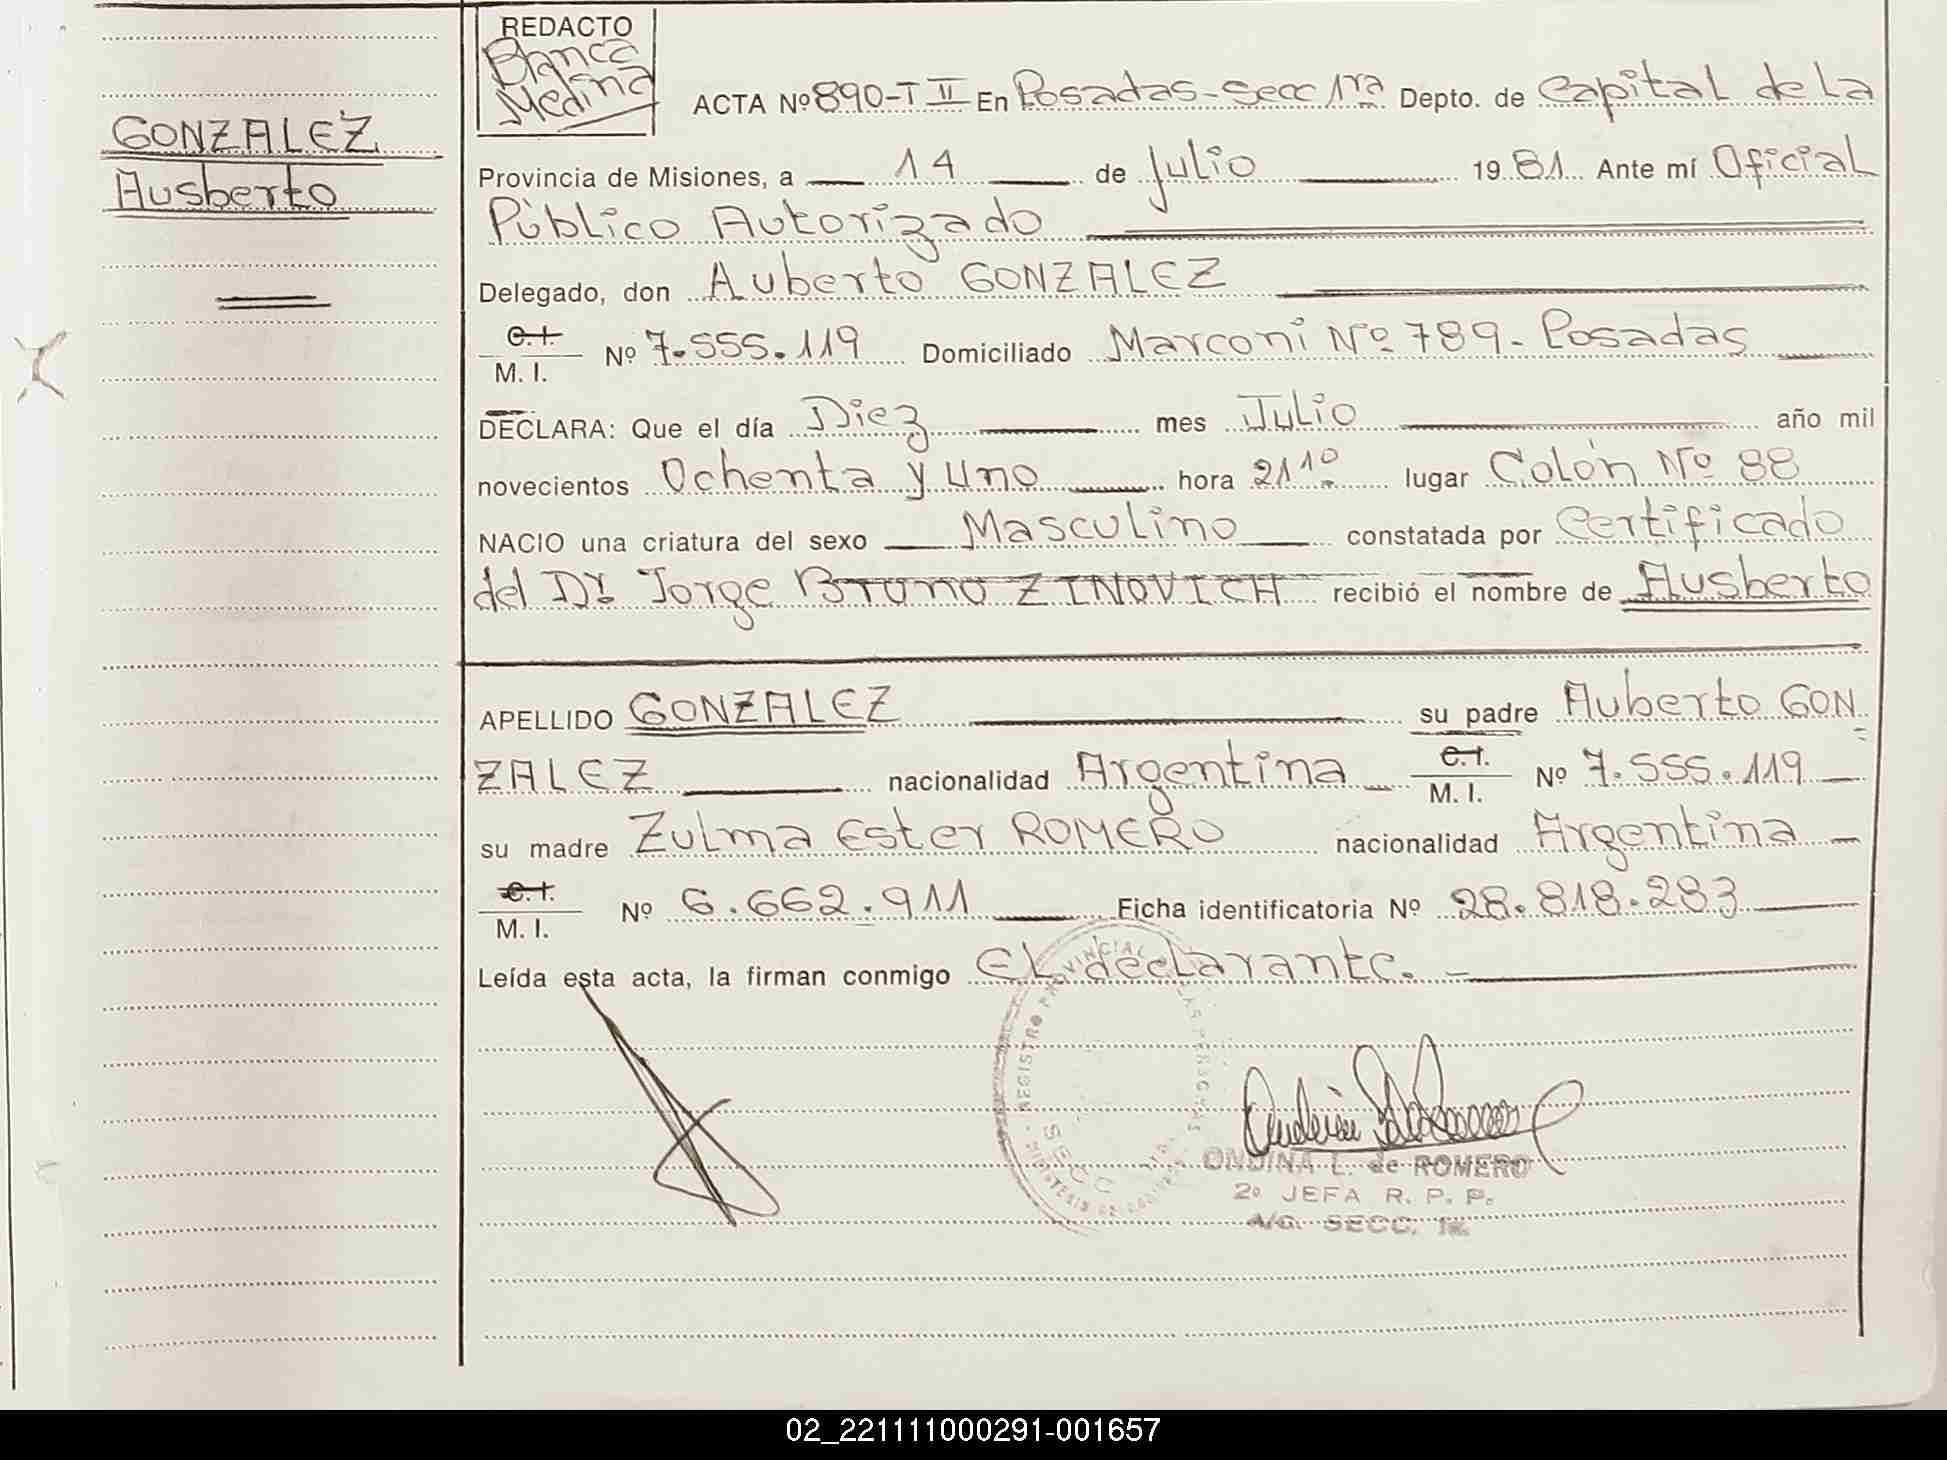 REDACTO
Blanca
Medina
GONZALEZ
Ausberto
ACTA Nº 890-T II En Posadas-Secc 1ra Depto. de Capital de la
Provincia de Misiones, a 14 de Julio 1981 Ante mí Oficial
Público Autorizado
Delegado, don Auberto GONZALEZ
C.I.
M. I. Nº 7.555.119 Domiciliado Marconi Nº 789- Posadas
DECLARA: Que el día Diez mes Julio año mil
novecientos Ochenta y Uno hora 21 10 lugar Colón Nº 88
NACIO una criatura del sexo Masculino constatada por Certificado
del Dr. Jorge Bruno ZINOVICH recibió el nombre de Ausberto
APELLIDO GONZALEZ su padre Auberto GON=
ZALEZ nacionalidad Argentina C.I. M. I. Nº 7.555.119
su madre Zulma Ester ROMERO nacionalidad Argentina
C.I.
M. I. Nº 6.662.911 Ficha identificatoria Nº 28.818.283
Leída esta acta, la firman conmigo El declarante.-
REGISTRO PROVINCIAL DE LAS PERSONAS
SECC 1ra.
ONDINA L. de ROMERO
2º JEFA R. P. P.
A/G. SECC. 1ª.
02_221111000291-001657